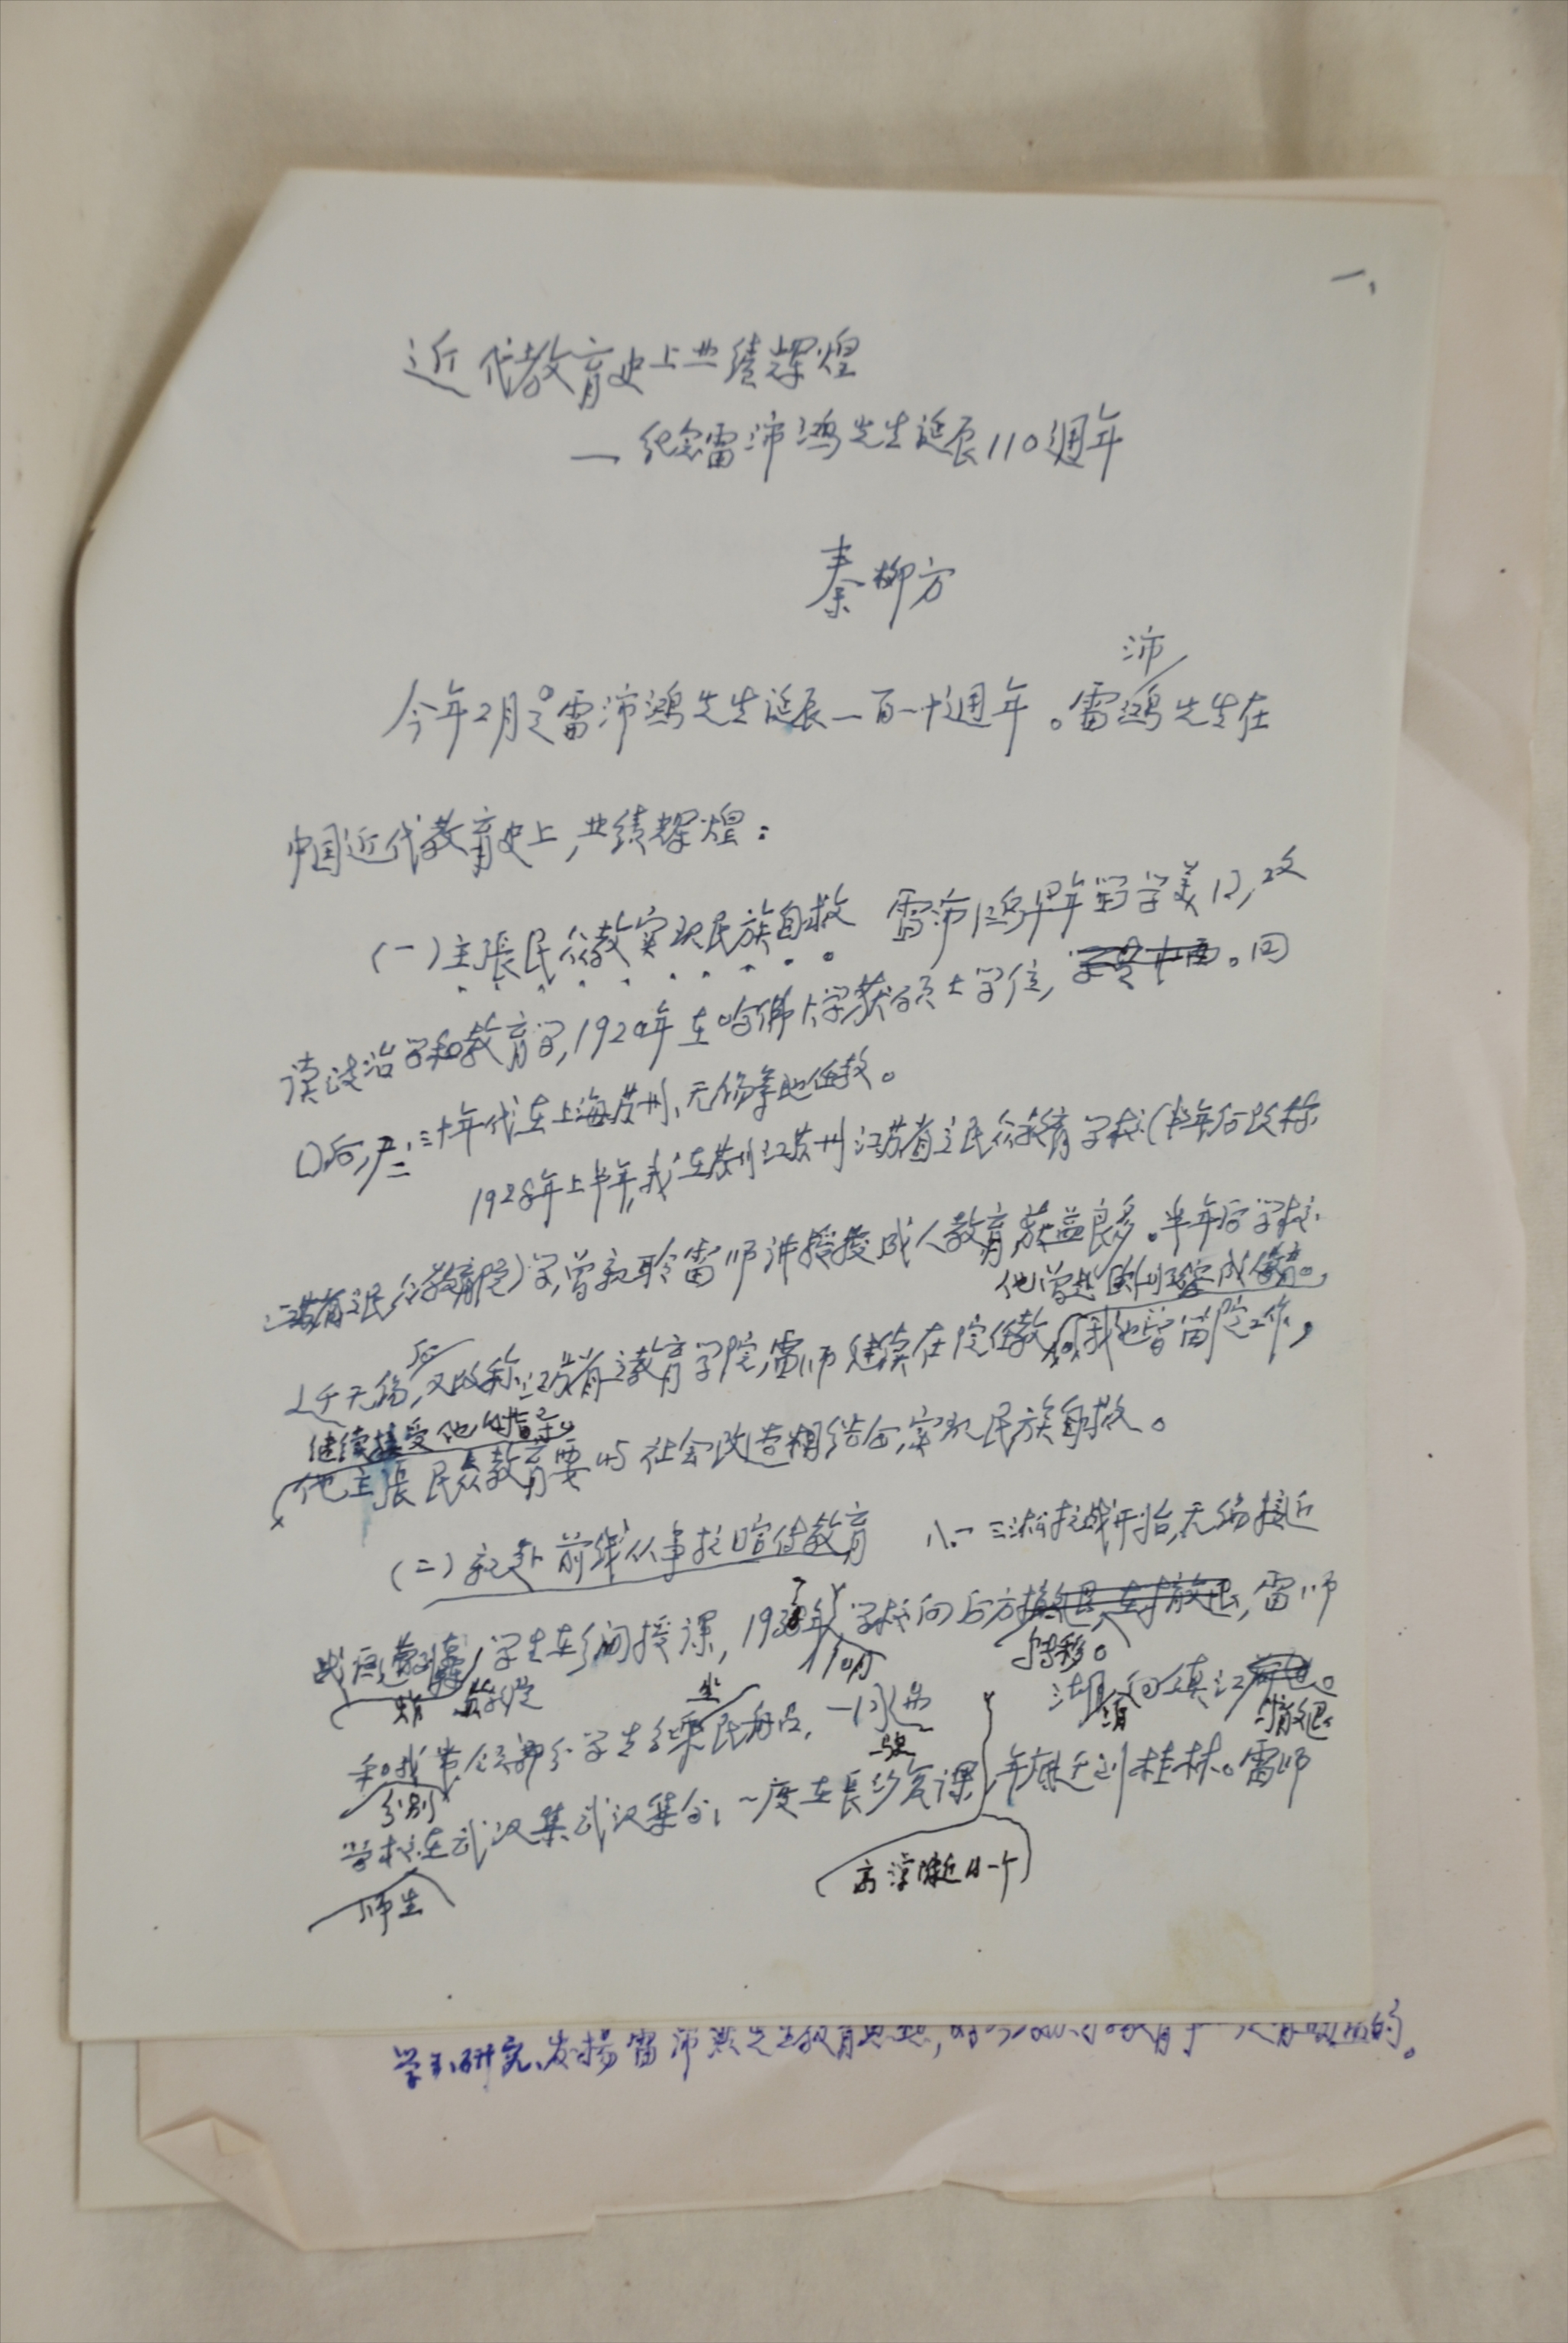 一、
近代教育史上业绩辉煌
—纪念雷沛鸿先生诞辰110週年
秦柳方
沛
今年2月是雷沛鸿先生诞辰一百一十週年。雷鸿先生在
中国近代教育史上,业绩辉煌:
(一)主張民众教实现民族自救 雷沛鸿早年留学美国,攻
读政治学和教育学,1920年在哈佛大学获硕士学位,。回
国后,二三十年代在上海苏州、无锡等地任教。
1928年上半年,我在苏州江苏省立民众教育学校(半年后改称
江苏省立民众教育院)学,曾亲聆雷师讲授成人教育,获益良多。半年后学校
他曾赴欧洲考察成人教育。
后
迁无锡,又改称江苏省立教育学院,雷师继续在院任教。我也留院工作,
继续接受他的指导。
他主張民众教育要与社会改造相结合,实现民族自救。
(二)亲赴前线从事抗宣传教育 八一三淞抗战开始,无锡接近
战,学生在乡间授课,193年,学校向后方,雷师
10月
转移。
和我带领部分学生乘民船,一同 湖向镇江。
坐
撤退
分别
学校在武汉集武汉集合,一度在長沙复课,年底迁到桂林。雷师
师生
高淳附近的一个
学习、研究、发扬雷沛鸿先生教育思想,的。